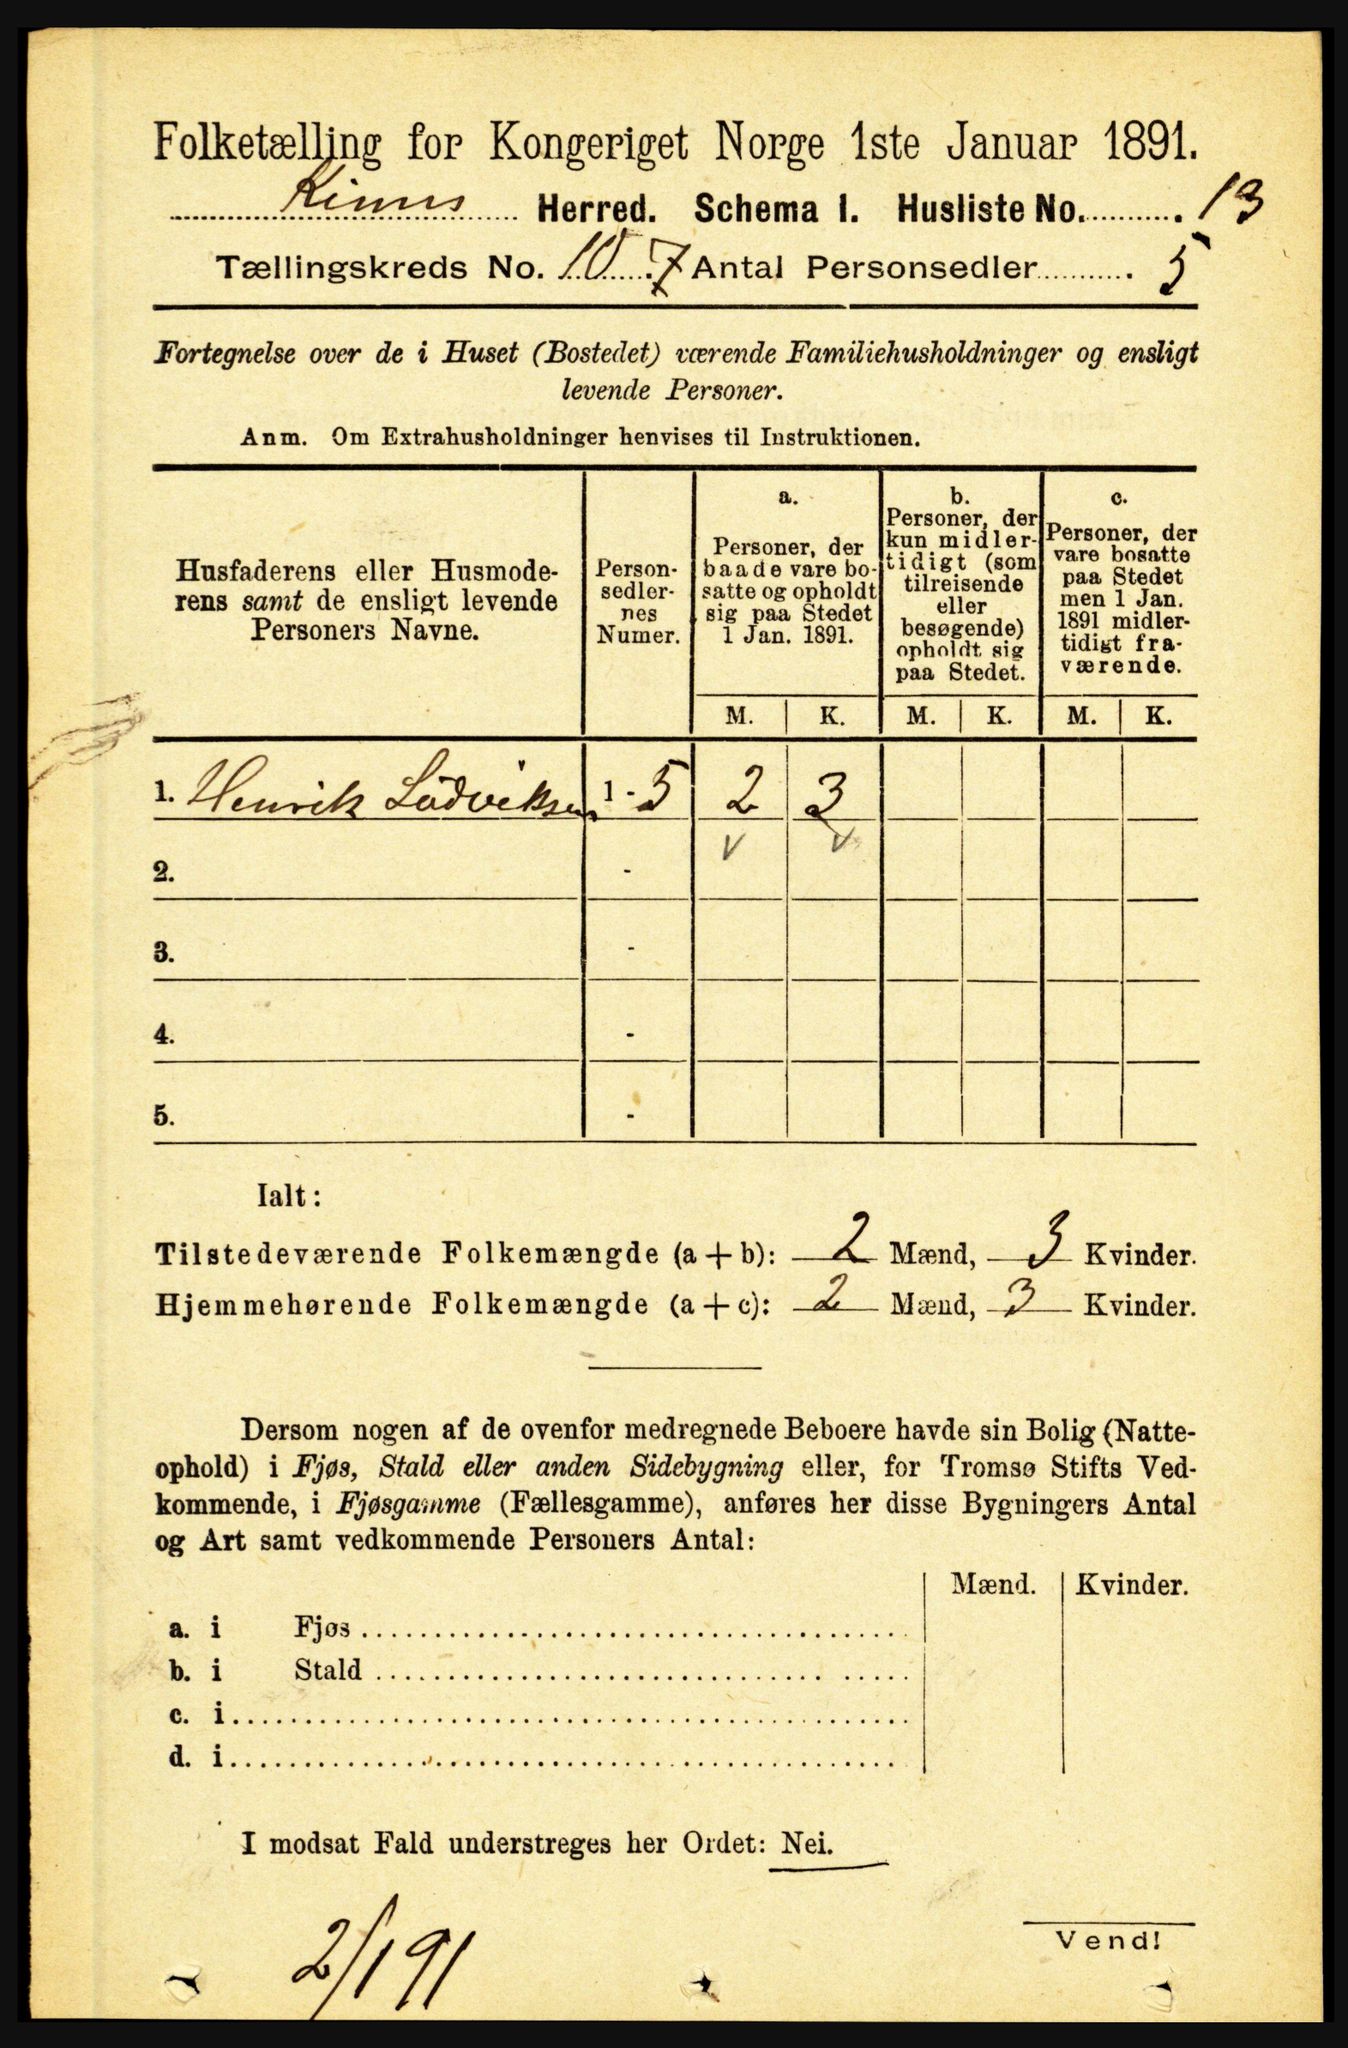 Folketælling for Kongeriget Norge 1ste Januar 1891.
Kinns Herred. Schema 1. Husliste No. 13
Tællingskreds No. 10 7 Antal Personsedler 5
Fortegnelse over de i Huset (Bostedet) værende Familiehusholdninger og ensligt
levende Personer.
Anm. Om Extrahusholdninger henvises til Instruktionen.
Husfaderens eller Husmode-
rens samt de ensligt levende
Personers Navne.
Person-
sedler-
nes
Numer.
a.
Personer, der
baade vare bo-
satte og opholdt
sig paa Stedet
1 Jan. 1891.
b.
Personer, der
kun midler-
tidigt (som
tilreisende
eller
besøgende)
opholdt sig
paa Stedet.
c.
Personer, der
vare bosatte
paa Stedet
men 1 Jan.
1891 midler-
tidigt fra-
værende.
M. K. M. K. M. K.
1. Henrik Ludviksen 1 - 5 2 3
2. - v v
3. -
4. -
5. -
Ialt:
Tilstedeværende Folkemængde (a + b): 2 Mænd, 3 Kvinder.
Hjemmehørende Folkemængde (a + c): 2 Mænd, 3 Kvinder.
Dersom nogen af de ovenfor medregnede Beboere havde sin Bolig (Natte-
ophold) i Fjøs, Stald eller anden Sidebygning eller, for Tromsø Stifts Ved-
kommende, i Fjøsgamme (Fællesgamme), anføres her disse Bygningers Antal
og Art samt vedkommende Personers Antal:
Mænd. Kvinder.
a. i Fjøs
b. i Stald
c. i
d. i
I modsat Fald understreges her Ordet: Nei.
2/1 91
Vend!